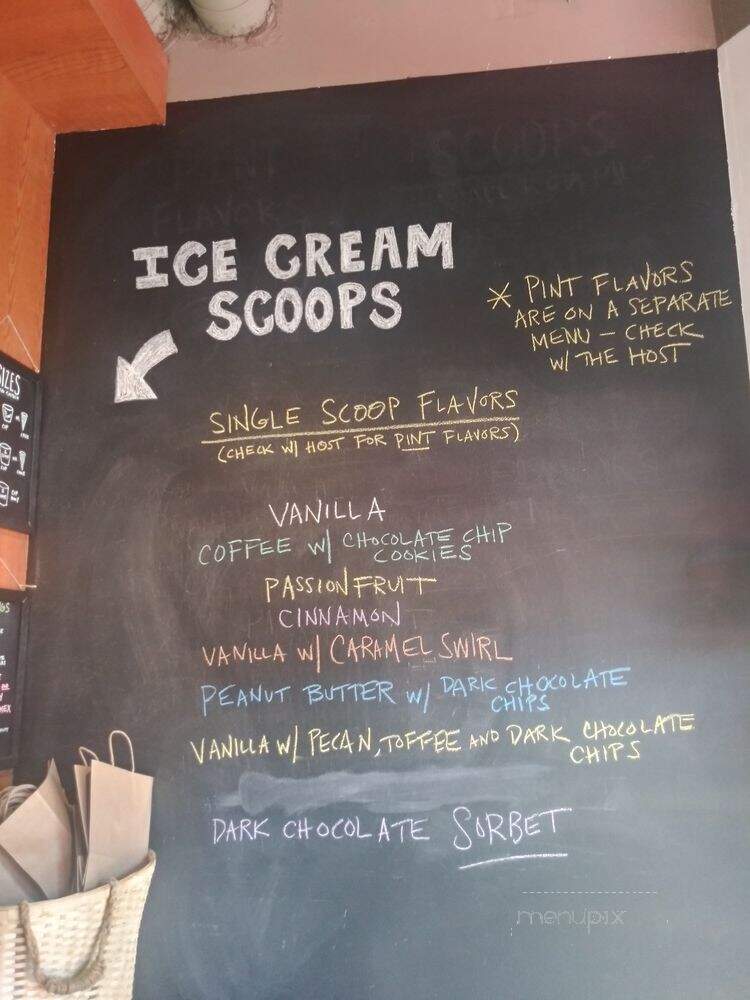 ICE CREAM
SCOOPS
* PINT FLAVORS
ARE ON A SEPARATE
MENU - CHECK
W/ THE HOST
SINGLE SCOOP FLAVORS
(CHECK W/ HOST FOR PINT FLAVORS)
VANILLA
COFFEE W/ CHOCOLATE CHIP
COOKIES
PASSIONFRUIT
CINNAMON
VANILLA W/ CARAMEL SWIRL
PEANUT BUTTER W/ DARK CHOCOLATE
CHIPS
VANILLA W/ PECAN, TOFFEE AND DARK CHOCOLATE
CHIPS
DARK CHOCOLATE SORBET
menupix
SCOOPS
FLAVORS
IZES
CUP
CUP